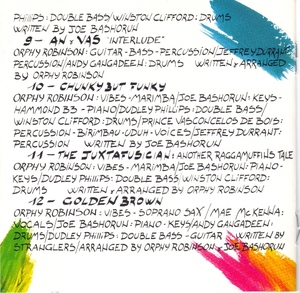 PHILIPS: DOUBLE BASS/WINSTON CLIFFORD: DRUMS
WRITTEN BY JOE BASHORUN
9 - AN; VAS INTERLUDE"
ORPHY ROBINSON: GUITAR - BASS - PERCUSSION/JEFFREY DURRANT:
PERCUSSION/ANDY GANGADEEN: DRUMS WRITTEN & ARRANGED
BY ORPHY ROBINSON
10 - CHUNKY BUT FUNKY
ORPHY ROBINSON: VIBES - MARIMBA/JOE BASHORUN: KEYS -
HAMMOND B3 - PIANO/DUDLEY PHILIPS: DOUBLE BASS/
WINSTON CLIFFORD: DRUMS/PRINCE VASCONCELOS DE BOIS:
PERCUSSION - BIRIMBAU - UDUH - VOICES/JEFFREY DURRANT:
PERCUSSION WRITTEN BY JOE BASHORUN
11 - THE JUXTAFUSICIAN: ANOTHER RAGGAMUFFINS TALE
ORPHY ROBINSON: VIBES - MARIMBA/JOE BASHORUN: PIANO -
KEYS/DUDLEY PHILIPS: DOUBLE BASS WINSTON CLIFFORD:
DRUMS WRITTEN & ARRANGED BY ORPHY ROBINSON
12 - GOLDEN BROWN
ORPHY ROBINSON: VIBES - SOPRANO SAX/MAE MCKENNA:
VOCALS/JOE BASHORUN: PIANO - KEYS/ANDY GANGADEEN:
DRUMS/DUDLEY PHILIPS: DOUBLE BASS - GUITAR WRITTEN BY
STRANGLERS/ARRANGED BY ORPHY ROBINSON & JOE BASHORUN